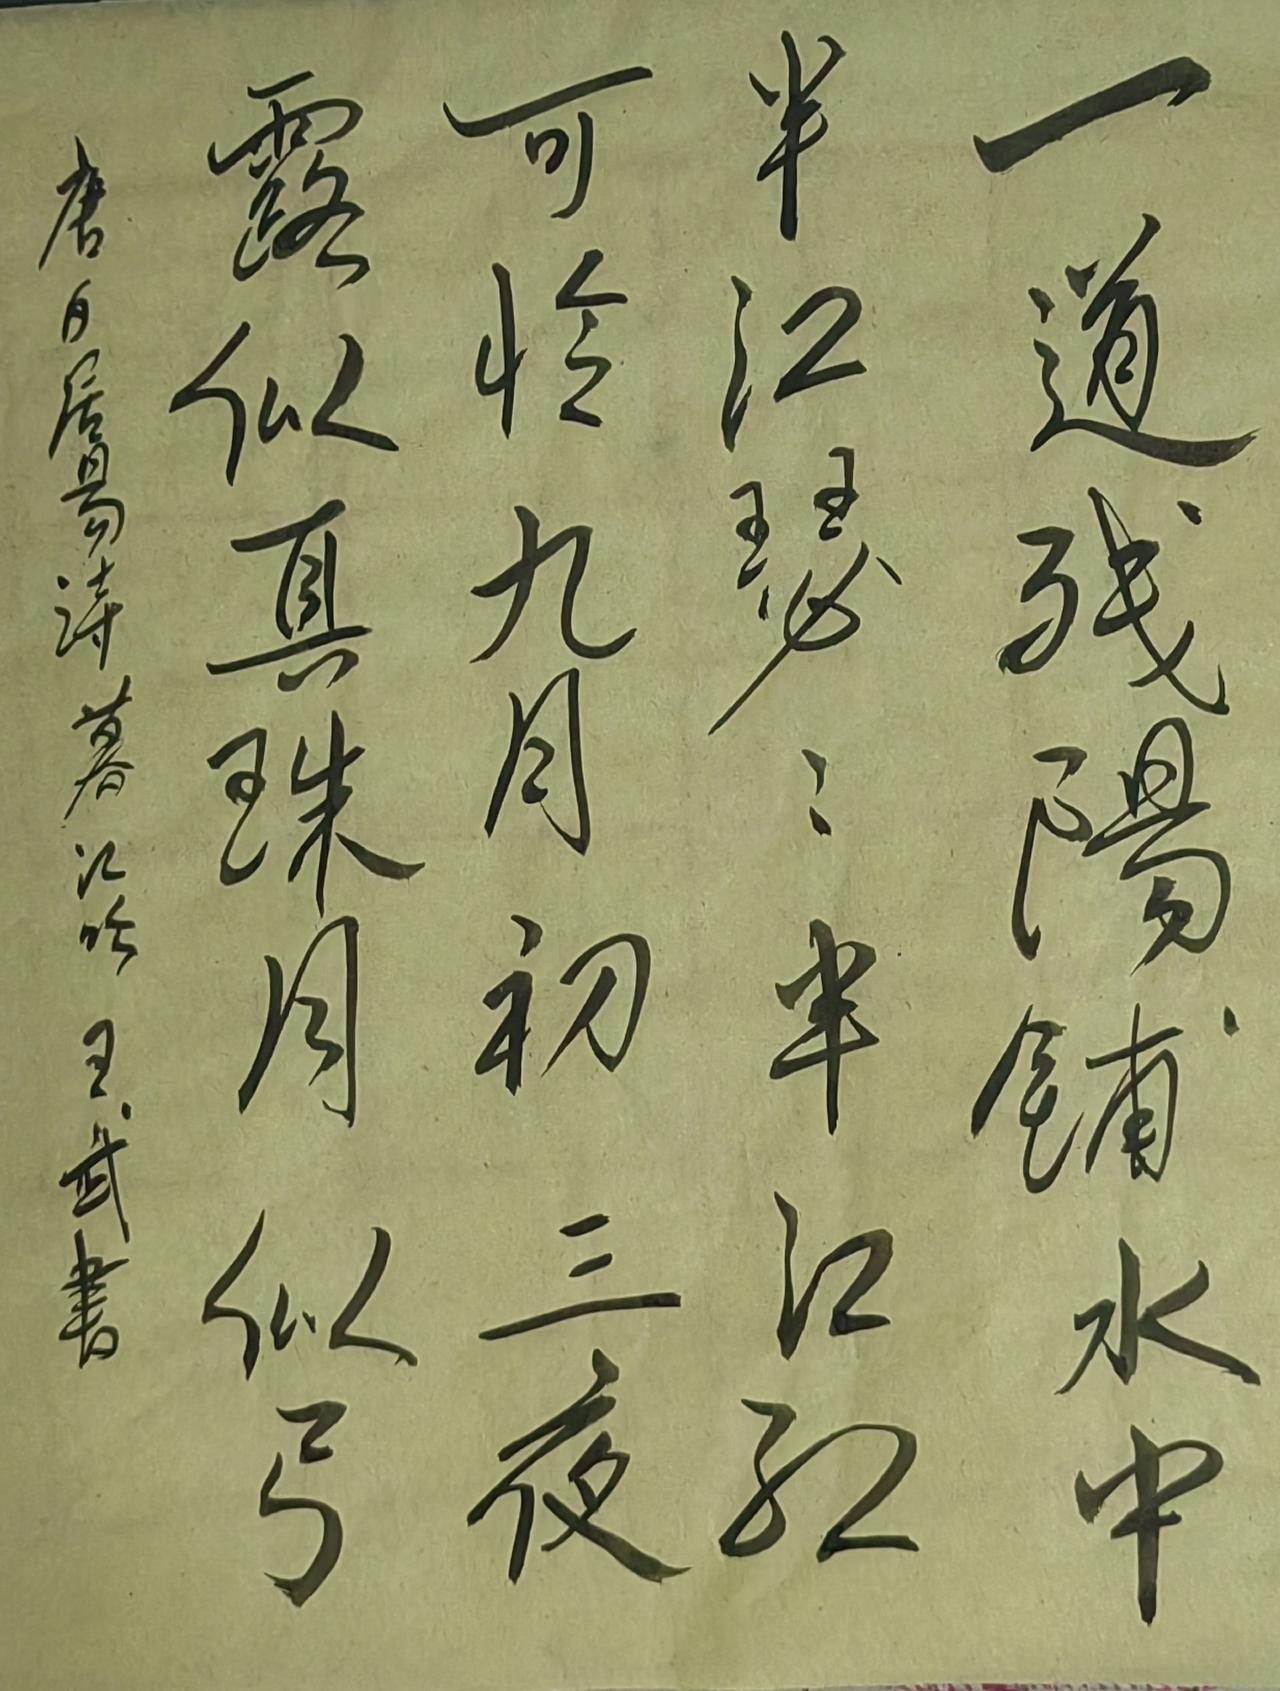 一道残陽鋪水中
半江瑟〻半江红
可怜九月初三夜
露似真珠月似弓
唐白居易诗暮江吟 王武書